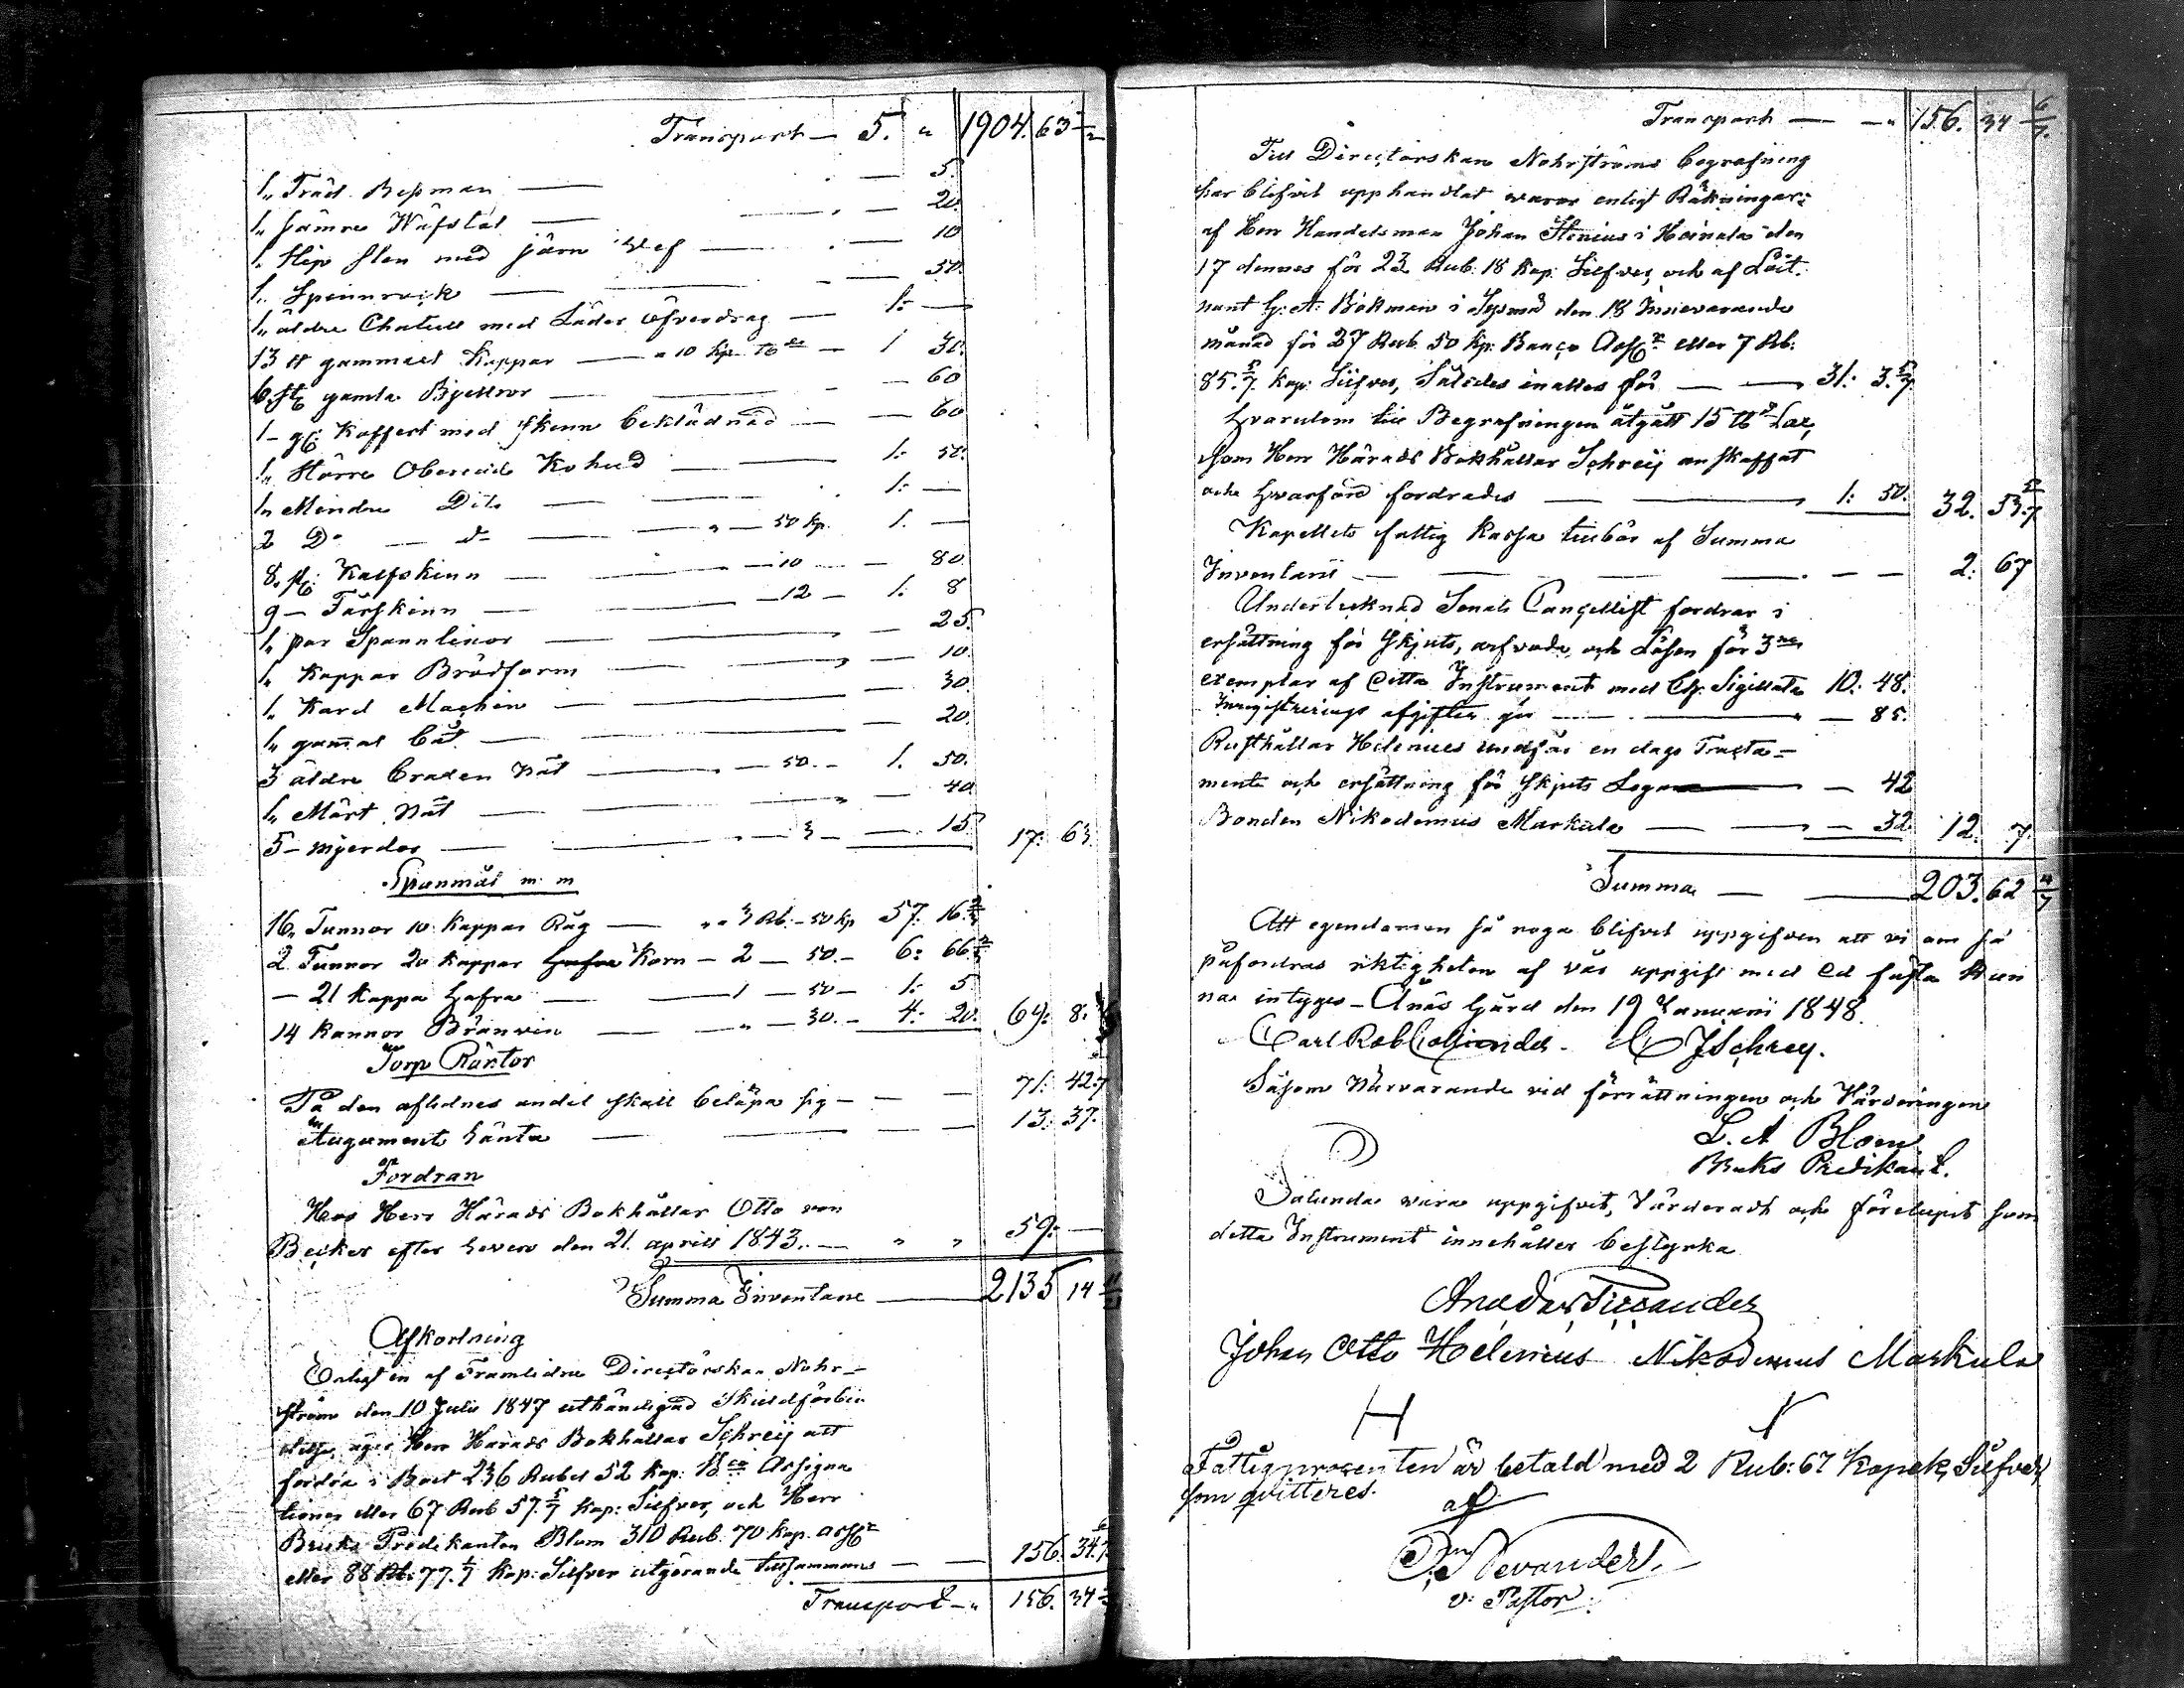 Transport — 5. " 1904. 63 1/2
1. Träd Besman — 5.
1. jämre Wäfstol — 20.
1. Slip sten med järn Vef — 10
1. Spinnrock — 50.
1. äldre Chatull med Läder öfverdrag — 1: —
13 ℔ gammalt Koppar — a 10 kp — 1 30.
6 st. gamla Bjellror — 60
1 — Koffert med skinn beklädnad — 60
1. Större Oberedd Kohud — 1: 50.
1. Mindre Dito — 1: —
2 Do — do — " — 50 kp. 1. —
8. st: Kalfskinn — 10 — 80.
9 — Fårskinn — 12 — 1: 8
1. par Spannlinor — 25.
1. Koppar Brödform — 10.
1. Kard Machin — 30.
1. gammal båt — 20.
3 äldre braxen Nät — 50. — 1. 50.
1. Mört Nät — 40
5 — mjerdor — 3 — 15. 17: 63.
Spanmål m: m
16. Tunnor 10 Kappar Råg — " a 3 Rb. — 50 kp 57: 16 2/3
2 Tunnor 20 Kappar Korn — 2 — 50. — 6: 66 2/3
— 21 Kappa hafra — 1 — 50 — 1: 5
14 Kannor Bränvin — " — 30. — 4: 20. 69: 8.
Torp Räntor
På den aflidnes andel skall belöpa sig — 71: 42.
Augument Ränta — 13: 37.
Fordran
Hos Herr Härads Bokhållar Otto von
Becker efter revers den 21. april 1843. — 59: —
Summa Inventarie — 2135 14
Afkortning
Enligt en af Framlidne Directörskan Nohr-
ström den 10 Julii 1847 uthändigad Skuldförbin
delse, äger Herr Harads Bokhållar Schreij att
fordra i Boet 236 Rubel 52 kop: Bco Assigna
tioner eller 67 Rub 57. 5/7 kop: Silfver, och Herr
Bruks Predikanten Blom 310 Rub. 70 kop. Assgr
eller 88 Rb: 77. 1/7 kop: Silfver utgörande tillsammans — 156. 34. 6/7
Transport — " 156. 34
Transport — — " 156. 34 6/7
Till Directörskan Nohrströms begrafning
har blifvit upphandlat waror enligt Räkningar:
af Herr Handelsman Johan Stenius i Heinola den
17 dennes för 23 Rub: 18 kop: Silfver, och af Löit.
nant G: A: Bökman i Sysmä den 18 Innevarande
månad för 27 Rub. 50 kp: Banco Assgr eller 7 Rb:
85. 5/7 kop: Silfver, Således inalles för — 31: 3. 5/7
hvarutom till Begrafningen åtgått 15 ℔ Lax,
som Herr Härads Bokhållar Schreij anskaffat
och hwarföre fordrades — 1: 50. 32. 53. 5/7
Kapellets fattig kassa tillbör af Summa
Inventarii — 2: 67
Undertecknad Senats Cancellist fordrar i
ersättning för skjuts, arfvode, och Lösen för 3ne
exemplar af detta Instrument med Ch: Sigillata 10: 48.
Inregistrerings afgiften gör — 85.
Rusthållar Helenius undfår en dags Tracta-
mente och ersättning för skjuts Lega — 42
Bonden Nikodemus Markula — 32 12. 7.
Summa — 203. 62 4/7
Att egendomen så noga blifvit uppgifven att vi om så
påfordras riktigheten af vår uppgift med ed fästa kun
na intygas — Ånäs Gård den 19 Januarii 1848.
Carl Rob — C J Schrey.
Såsom Närvarande vid förrättningen och Värderingen
L. A Blom
Bruks Predikant.
Salunda vara uppgifvet, Värderadt och förelupit som
detta Instrument innehåller bestyrka
Johan Otto Helenius Nikodemus Markula
H
Fattigprocenten är betald med 2 Rub: 67 Kopek, Silfver,
som qvitteres.
af
Nevander.
v: Pastor.